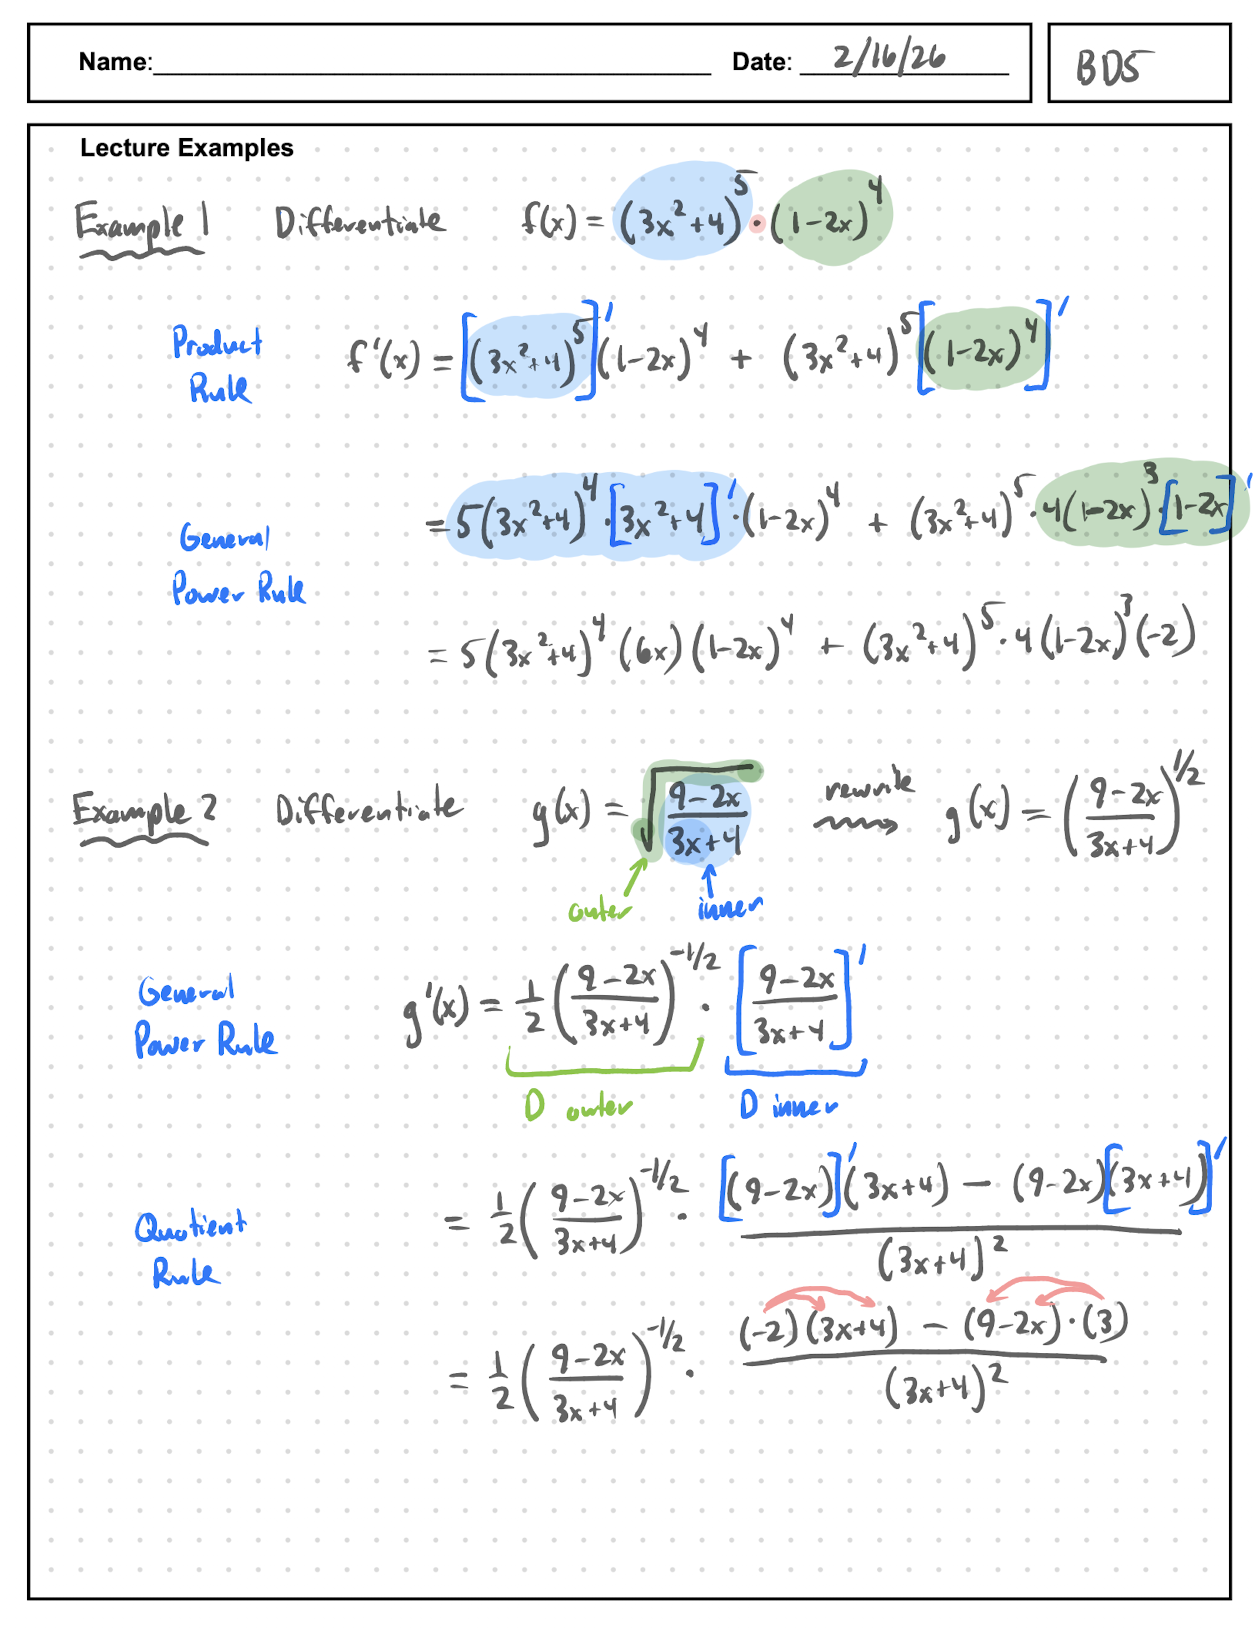 Name: Date: 2/16/26 BD5
Lecture Examples
Example 1 Differentiate f(x) = (3x²+4)⁵ · (1-2x)⁴
Product Rule f'(x) = [(3x²+4)⁵]'(1-2x)⁴ + (3x²+4)⁵[(1-2x)⁴]'
= 5(3x²+4)⁴·[3x²+4]'·(1-2x)⁴ + (3x²+4)⁵·4(1-2x)³·[1-2x]'
General Power Rule
= 5(3x²+4)⁴(6x)(1-2x)⁴ + (3x²+4)⁵·4(1-2x)³(-2)
Example 2 Differentiate g(x) = √((9-2x)/(3x+4)) rewrite g(x) = ((9-2x)/(3x+4))^(1/2)
outer inner
General Power Rule g'(x) = 1/2((9-2x)/(3x+4))^(-1/2) · [(9-2x)/(3x+4)]'
D outer D inner
Quotient Rule = 1/2((9-2x)/(3x+4))^(-1/2) · ([(9-2x)]'(3x+4) - (9-2x)[(3x+4)]')/(3x+4)²
= 1/2((9-2x)/(3x+4))^(-1/2) · ((-2)(3x+4) - (9-2x)·(3))/(3x+4)²